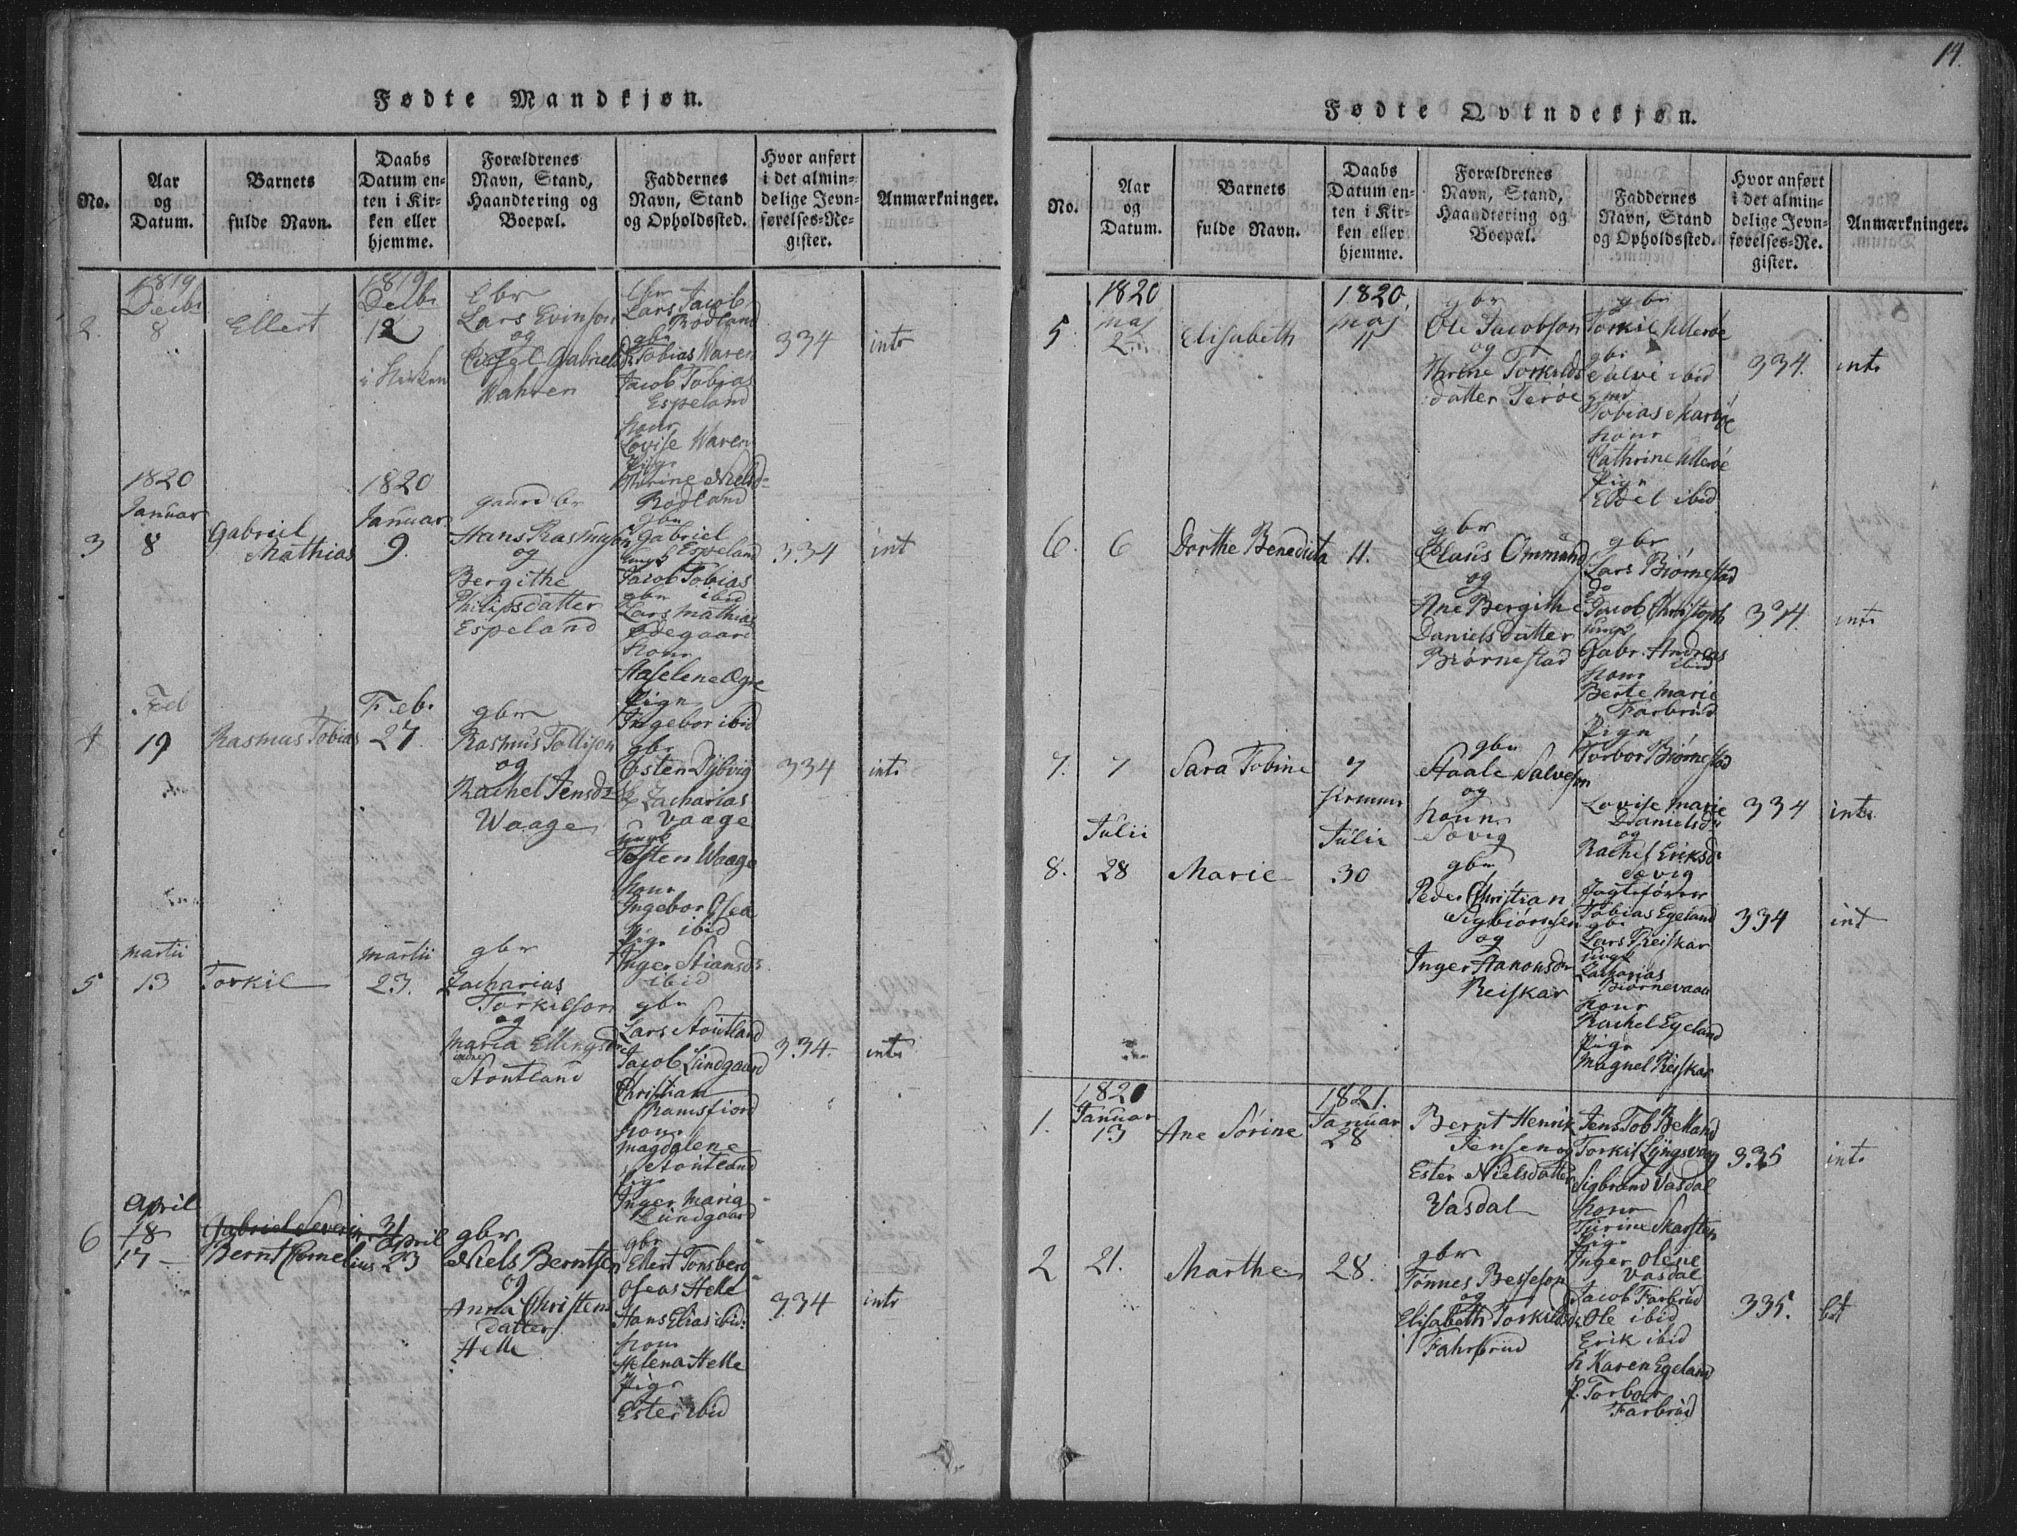 14.
Fødte Mandkjøn.
No.
Aar
og
Datum.
Barnets
fulde Navn.
Daabs
Datum en-
ten i Kir-
ken eller
hjemme.
Forældrenes
Navn, Stand,
Haandtering og
Boepæl.
Faddernes
Navn, Stand
og Opholdssted.
Hvor anført
i det almin-
delige Jevn-
førelses-Re-
gister.
Anmærkninger.
2.
1819
Decbr
8
Ellert
1819
Decbr
12
i Kirken
gbr
Lars Evinson
og
Gabrield
Wahren
Lars Jacob
Rødland
gbr
Tobias Waren
Jacob Tobias
Espeland
konr
Lovise Waren
Pige
Thrine Nielsd
Rødland
334
intr
3
1820
Januar
8
Gabriel
Mathias
1820
Januar
9.
gaardbr
Hans Rasmuson
og
Bergithe
Philipsdatter
Espeland
gbr
Gabriel
Espeland
ungk
Jacob Tobias
gbr ibid
Lars Mathias
Ødegaard
konr
Aaselene Ogre
Pign
Ingebor ibid
334
int
4
Feb
19
Rasmus Tobias
Feb.
27.
gbr
Rasmus Tollison
og
Rachel Jensdr
Waage
gbr
Osten Sybvig
Zacharias
Vaage
ungk
Tosten Waage
konr
Ingebor Osea
ibid
Pige
Inger Stiansdr
ibid
334
intr
5
Martii
13
Torkil
Martii
23.
gbr
Zacharias
Torkilson
og
Maria Ellingsdr
indre
Stoutland
gbr
Lars Stoutland
Jacob Lundgaard
Christian
Ramsfiord
konr
Magdalene
Stoutland
Pige
Inger Maria
Lundgaard
334.
intr
6
April
18
17
Gabriel Severin
Bernt Cornelius
31
April
23
gbr
Niels Berntsen
og
Anna Christens
datter
Helle
gbr
Ellert Tonsberg
Oseas Helle
Hans Elias ibid:
konr
Helena Helle
Pige
Ester ibid
334
intr
Fødte Qvindekjøn.
No.
Aar
og
Datum.
Barnets
fulde Navn.
Daabs
Datum en-
ten i Kir-
ken eller
hjemme.
Forældrenes
Navn, Stand,
Haandtering og
Boepæl.
Faddernes
Navn, Stand
og Opholdssted.
Hvor anført
i det almin-
delige Jevn-
førelses-Re-
gister.
Anmærkninger.
5.
1820
Maj
2
Elisabeth
1820
Maj
11
gbr
Ole Jacobson
og
Thrine Torkilds
datter Terøe
gbr
Torkil Ullerøe
gbr
Salve ibid
Tobias Skarøe
konr
Cathrine Ullerøe
Pign
Edel ibid
334.
intr
6.
6
Dorthe Benedicta
11.
gbr
Claus Ommund
og
Ane Bergithe
Daniels datter
Biørnestad
gbr
Lars Biørnestad
Do
Jacob Christoph
ungk
Gabr. Andreas
ibid
konr
Berte Marie
Farbrud
Pign
Torbor Biørnestad
334.
intr
7.
7
Sara Tobine
7
hiemme
gbr
Staale Salveson
og
konr
Søvig
Lovise Marie
Danielsdr
og
Rachel Eriksdr
Søvig
334
intr
8.
Julii
28
Marie
Julii
30
gbr
Peder Christian
Sigbiørnsen
og
Inger Aanonsdr
Reiskar
Jagtefører
Tobias Egeland
gbr
Lars Reiskar
ungk
Zacharias
Biørnevaag
konr
Rachel Egeland
Pige
Magnel Reiskar
334
int
1.
1820
Januar
13
Ane Sørine
1821.
Januar
28
Bernt Henrik
Jensen og
Ester Nielsdatter
Vasdal
Jens Tob Belland
Torkil Lyngsvaag
Sigbrand Vasdal
konr
Turine Skarsten
Pige
Inger Olene
Vasdal
335
intr
2
21.
Marthe
28.
gbr
Tønnes Besseson
og
Elisabeth Torkildsdr
Fahrbrud
Jacob Farbrud
Ole ibid
Erik ibid
k Karen Egeland
P. Torbor
Farbrud
335.